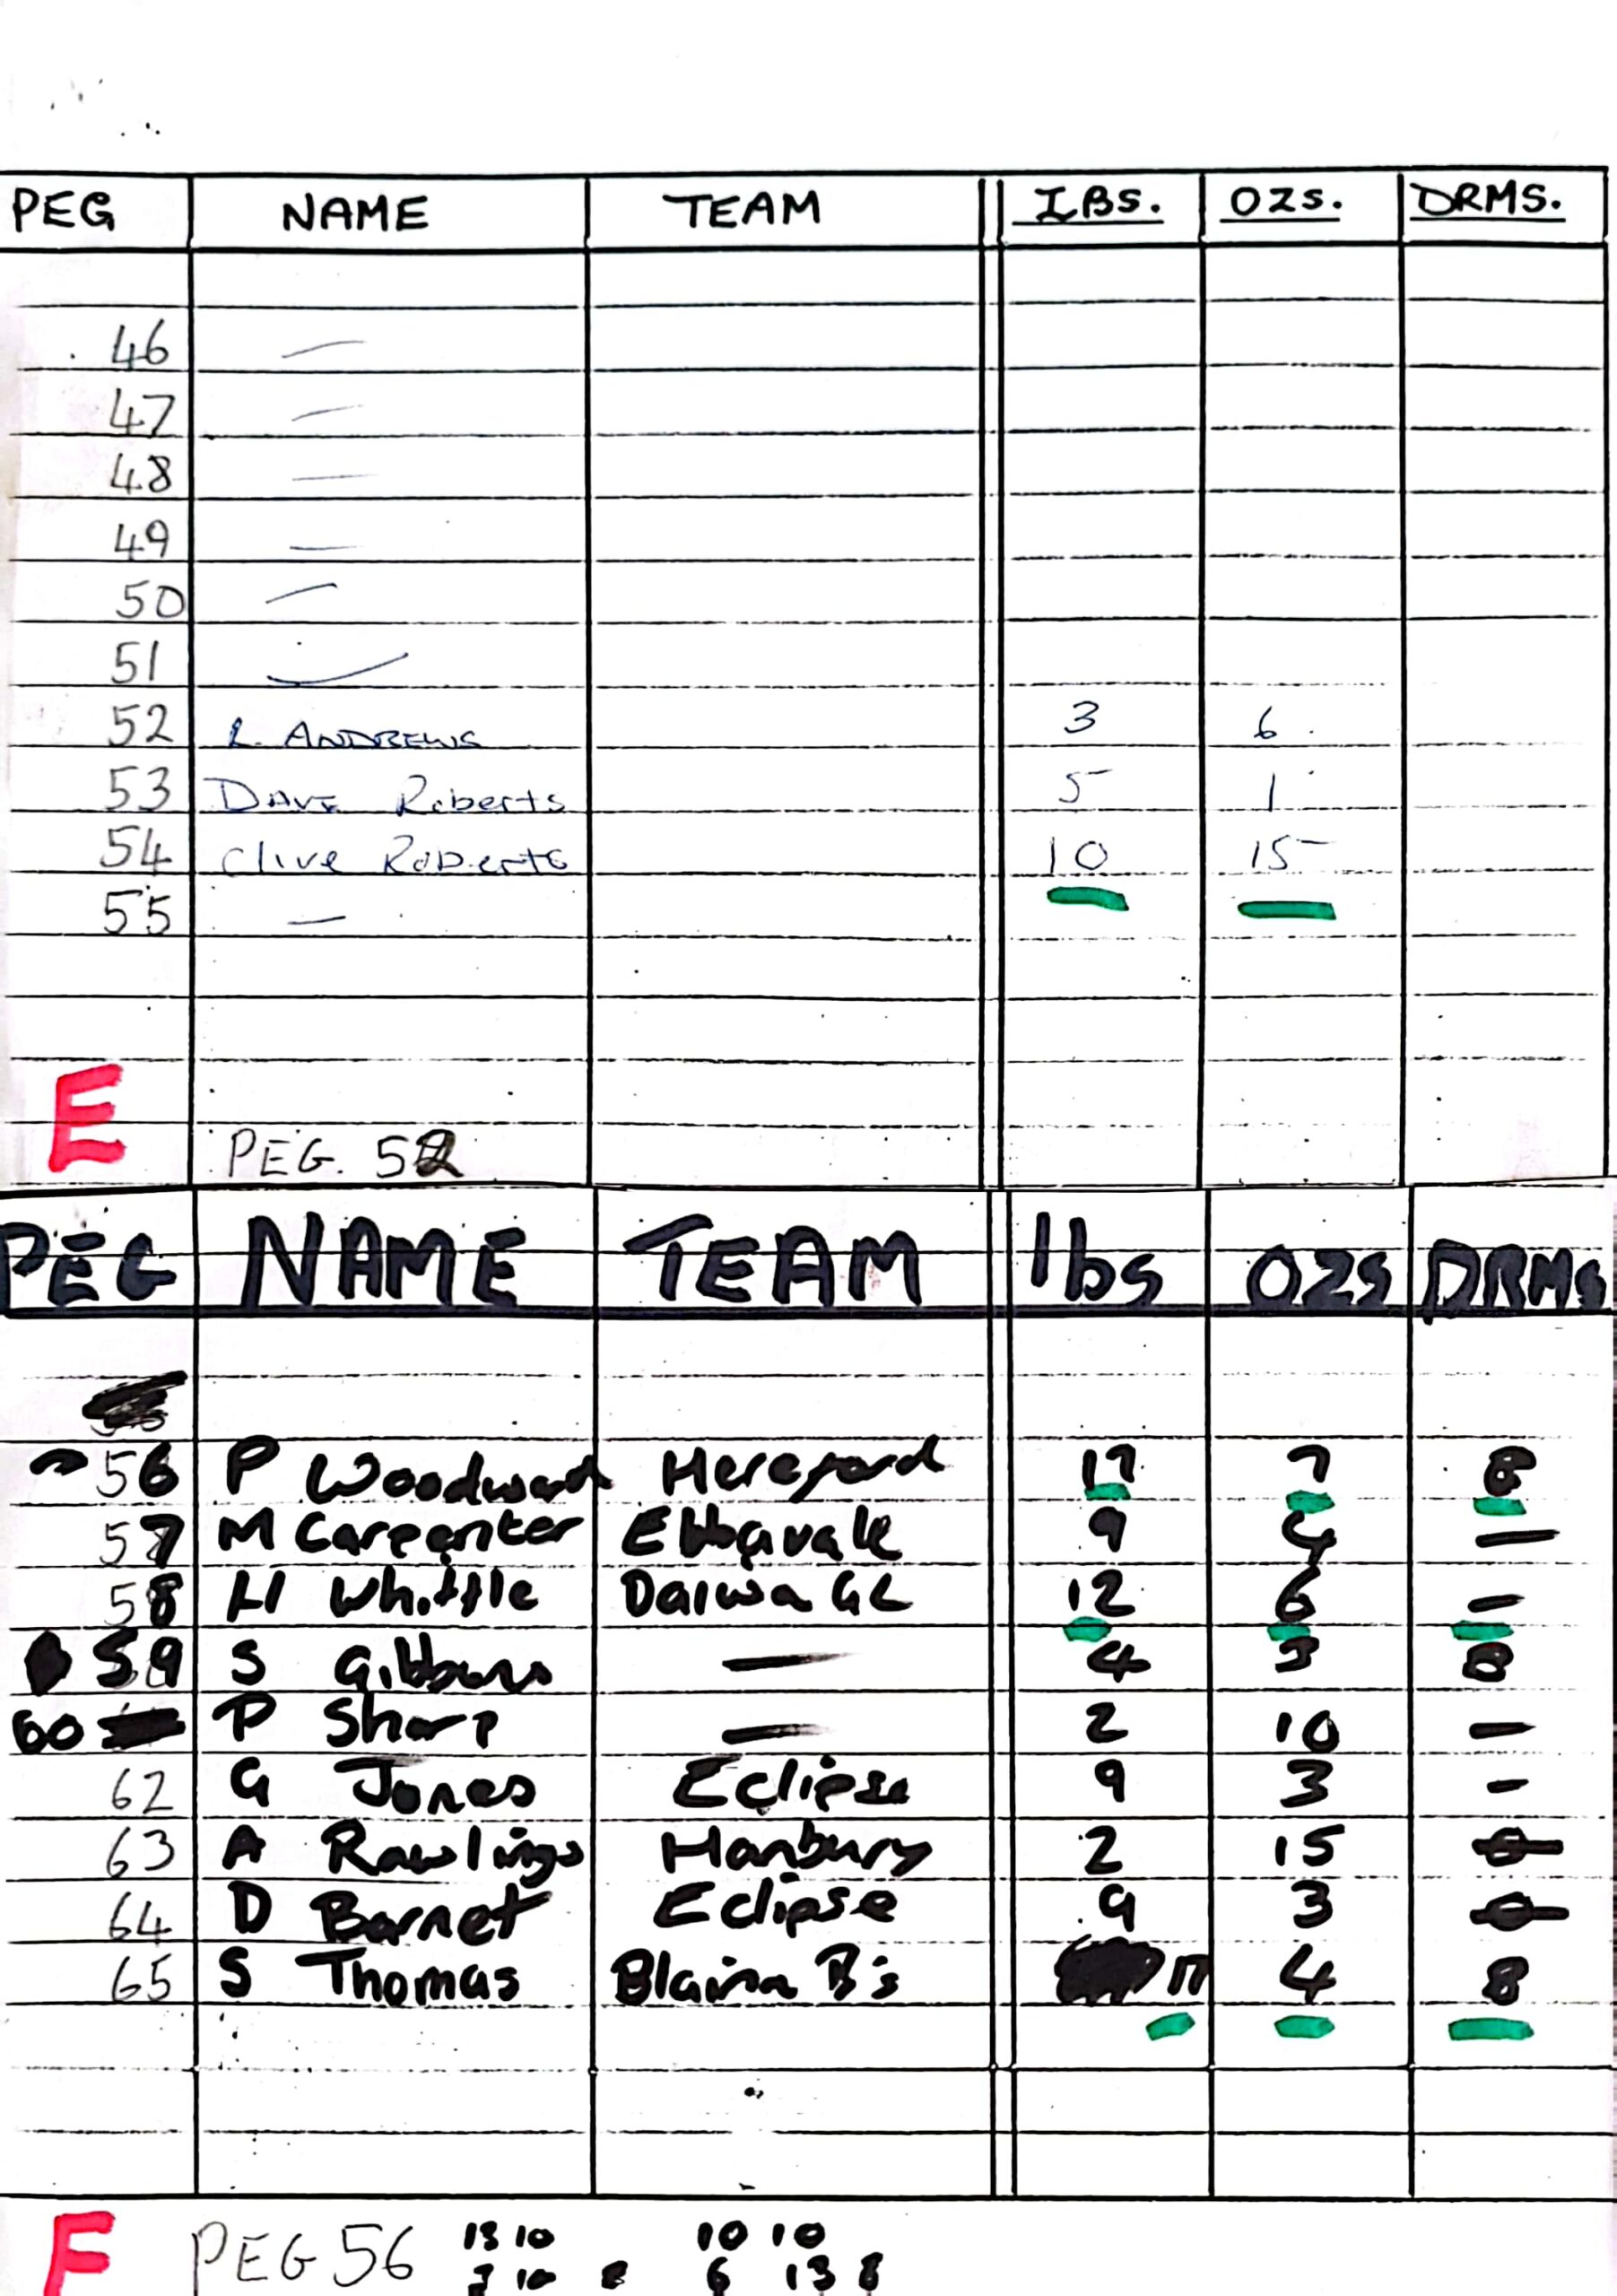 PEG NAME TEAM LBS. OZS. DRMS.
46 —
47 —
48 —
49 —
50 —
51 —
52 L. ANDREWS 3 6
53 DAVE Roberts 5 1
54 Clive Roberts 10 15
55 —
E PEG. 52
PEG NAME TEAM lbs OZS DRMS
56 P Woodward Hereford 17 7 8
57 M Carpenter Ebbwvale 9 4 —
58 H Whittle Daiwa GC 12 6 —
59 S Gibbons — 4 3 8
60 P Sharp — 2 10 —
62 G Jones Eclipse 9 3 -
63 A Rawlings Hanbury 2 15
64 D Barnet Eclipse 9 3
65 S Thomas Blaina B's 17 4 8
F PEG 56 13 10 10 10
3 10 8 6 13 8